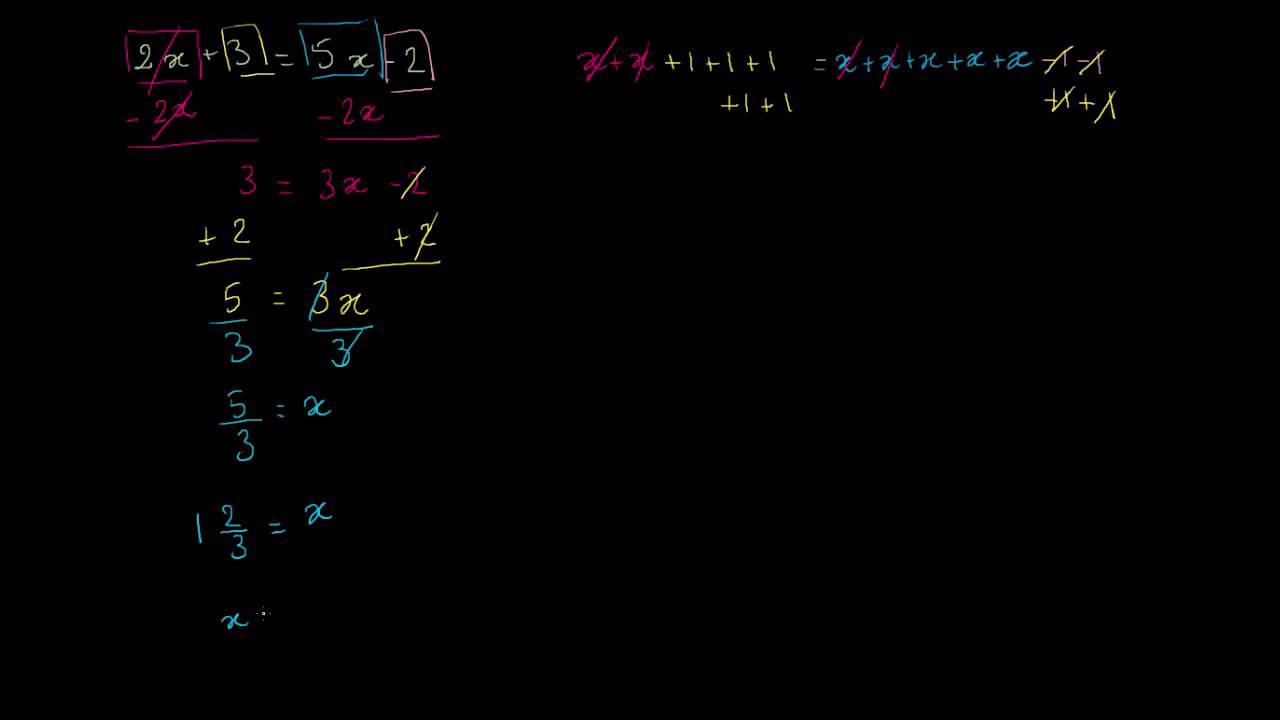 2x + 3 = 5x - 2
- 2x - 2x
3 = 3x - 2
+ 2 + 2
5 = 3x
3 3
5/3 = x
1 2/3 = x
x
x + x + 1 + 1 + 1 = x + x + x + x + x - 1 - 1
+ 1 + 1 + 1 + 1